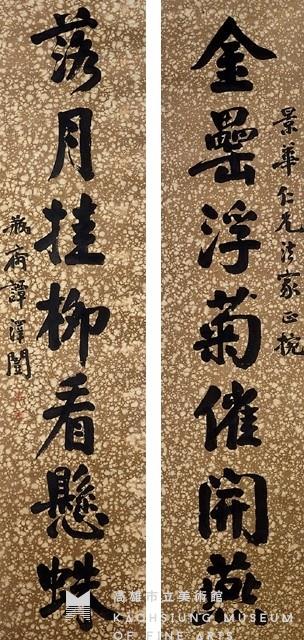 景華仁兄法家正捥
金罍浮菊催開燕
落月挂柳看懸蛛
瓶齋譚澤闓
高雄市立美術館
KAOHSIUNG MUSEUM
OF FINE ARTS